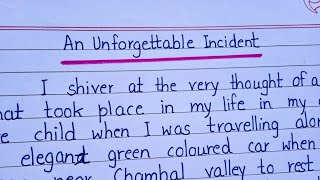 An Unforgettable Incident
I shiver at the very thought of a
that took place in my life in my
child when I was travelling
elegant green coloured car when
near Chambal valley to rest